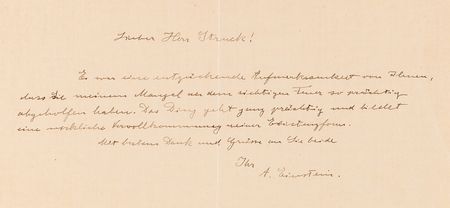 Lieber Herr Struck!
Es war eine entzückende Aufmerksamkeit von Ihnen,
dass Sie meinem Mangel an dem richtigen Feuer so prächtig
abgeholfen haben. Das Ding geht ganz prächtig und bildet
eine wirkliche Vervollkommnung meiner Existenzform.
Mit bestem Dank und Grüssen an Sie beide
Ihr
A. Einstein.